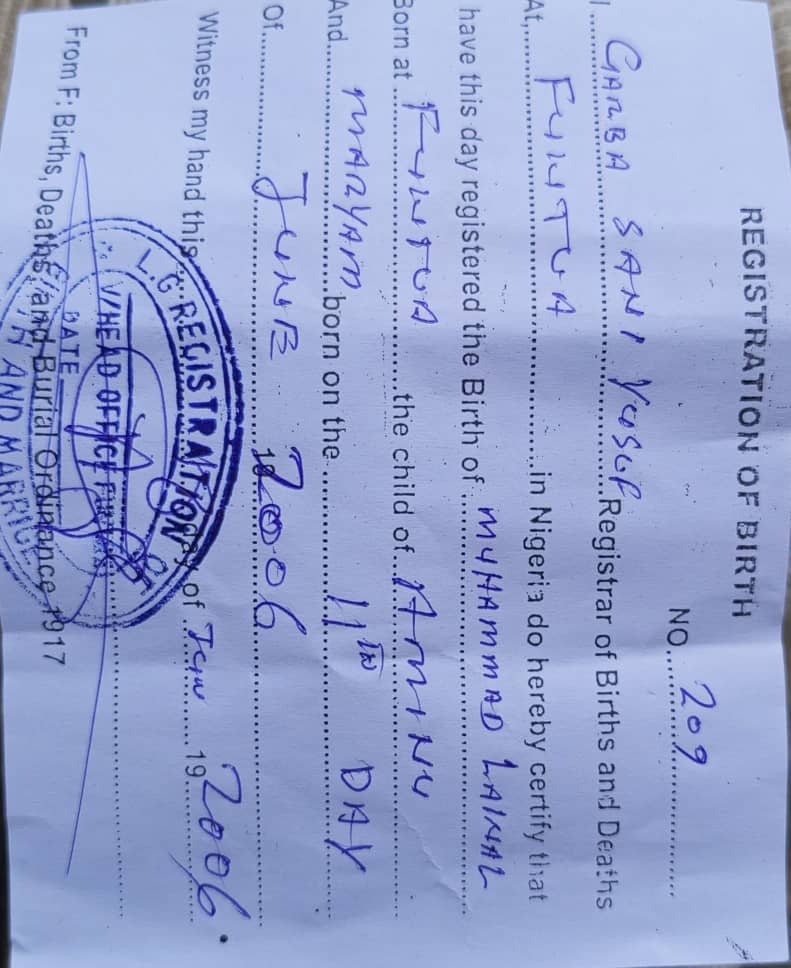 REGISTRATION OF BIRTH
NO. 209
I GARBA SANI YUSUF Registrar of Births and Deaths
At, FUNTUA in Nigeria do hereby certify that
have this day registered the Birth of MUHAMMAD
Born at FUNTUA the child of AMINU
And MARYAM born on the 11TH DAY
Of JUNE 19 2006
Witness my hand this day of 19 2006
From F: Births, Deaths, and Burial Ordinance 1917
L.G. REGISTRATION
V/HEAD OFFICE
DATE
AND